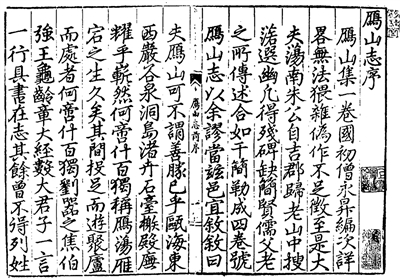 鴈山志序
鴈山集一卷國初僧永昇編次詳
畧無法猥雜偽作不足徵至是大
夫蕩南朱公自吉郡歸老山中搜
滛選幽凢得殘碑缺簡賢儒父老
之所傳述合如干簡勒成四卷號
鴈山志以余謬當兹邑宜敘敘曰
夫鴈山可不謂善勝巳乎甌海東
西巖谷泉洞島渚卉石臺榭殿廡
耀乎嶄然何啻什百獨稱鴈蕩鴈
宕之生久矣其間投足而遊聚廬
而處者何啻什百獨劉器之焦伯
強王龜齡章大經數大君子一言
一行具書在志其餘曾不得列姓
鴈山志前序